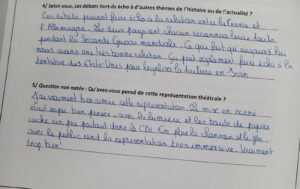 4/ Selon vous, ces débats font-ils écho à d'autres thèmes de l'histoire ou de l'actualité ?
Ces débats peuvent faire écho à la relation entre la France et
l'Allemagne. Les deux pays ont chacun reconnu leurs torts
pendant la Seconde Guerre mondiale. Ce qui fait qu'aujourd'hui
nous avons une très bonne relation. Ça peut également faire écho à la
tentative des Etats-Unis pour légaliser la torture en
5/ Question non notée : Qu'avez-vous pensé de cette représentation théâtrale ?
J'ai vraiment bien aimé cette représentation. La mise en scène
était super bien pensée, avec la lumière et les bouts de papiers
caché un peu partout dans le CDI. En plus la chanson et le jeu
avec le public rend la représentation très immersive. Vraiment
trop bien !